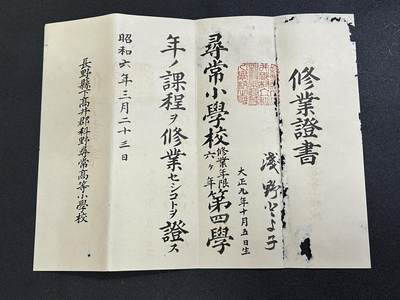 修業證書
淺野とよ子
大正九年十月五日生
尋常小學校修業年限六ヶ年第四學
年ノ課程ヲ修業セシコトヲ證ス
昭和六年三月二十三日
長野縣下高井郡科野尋常高等小學校